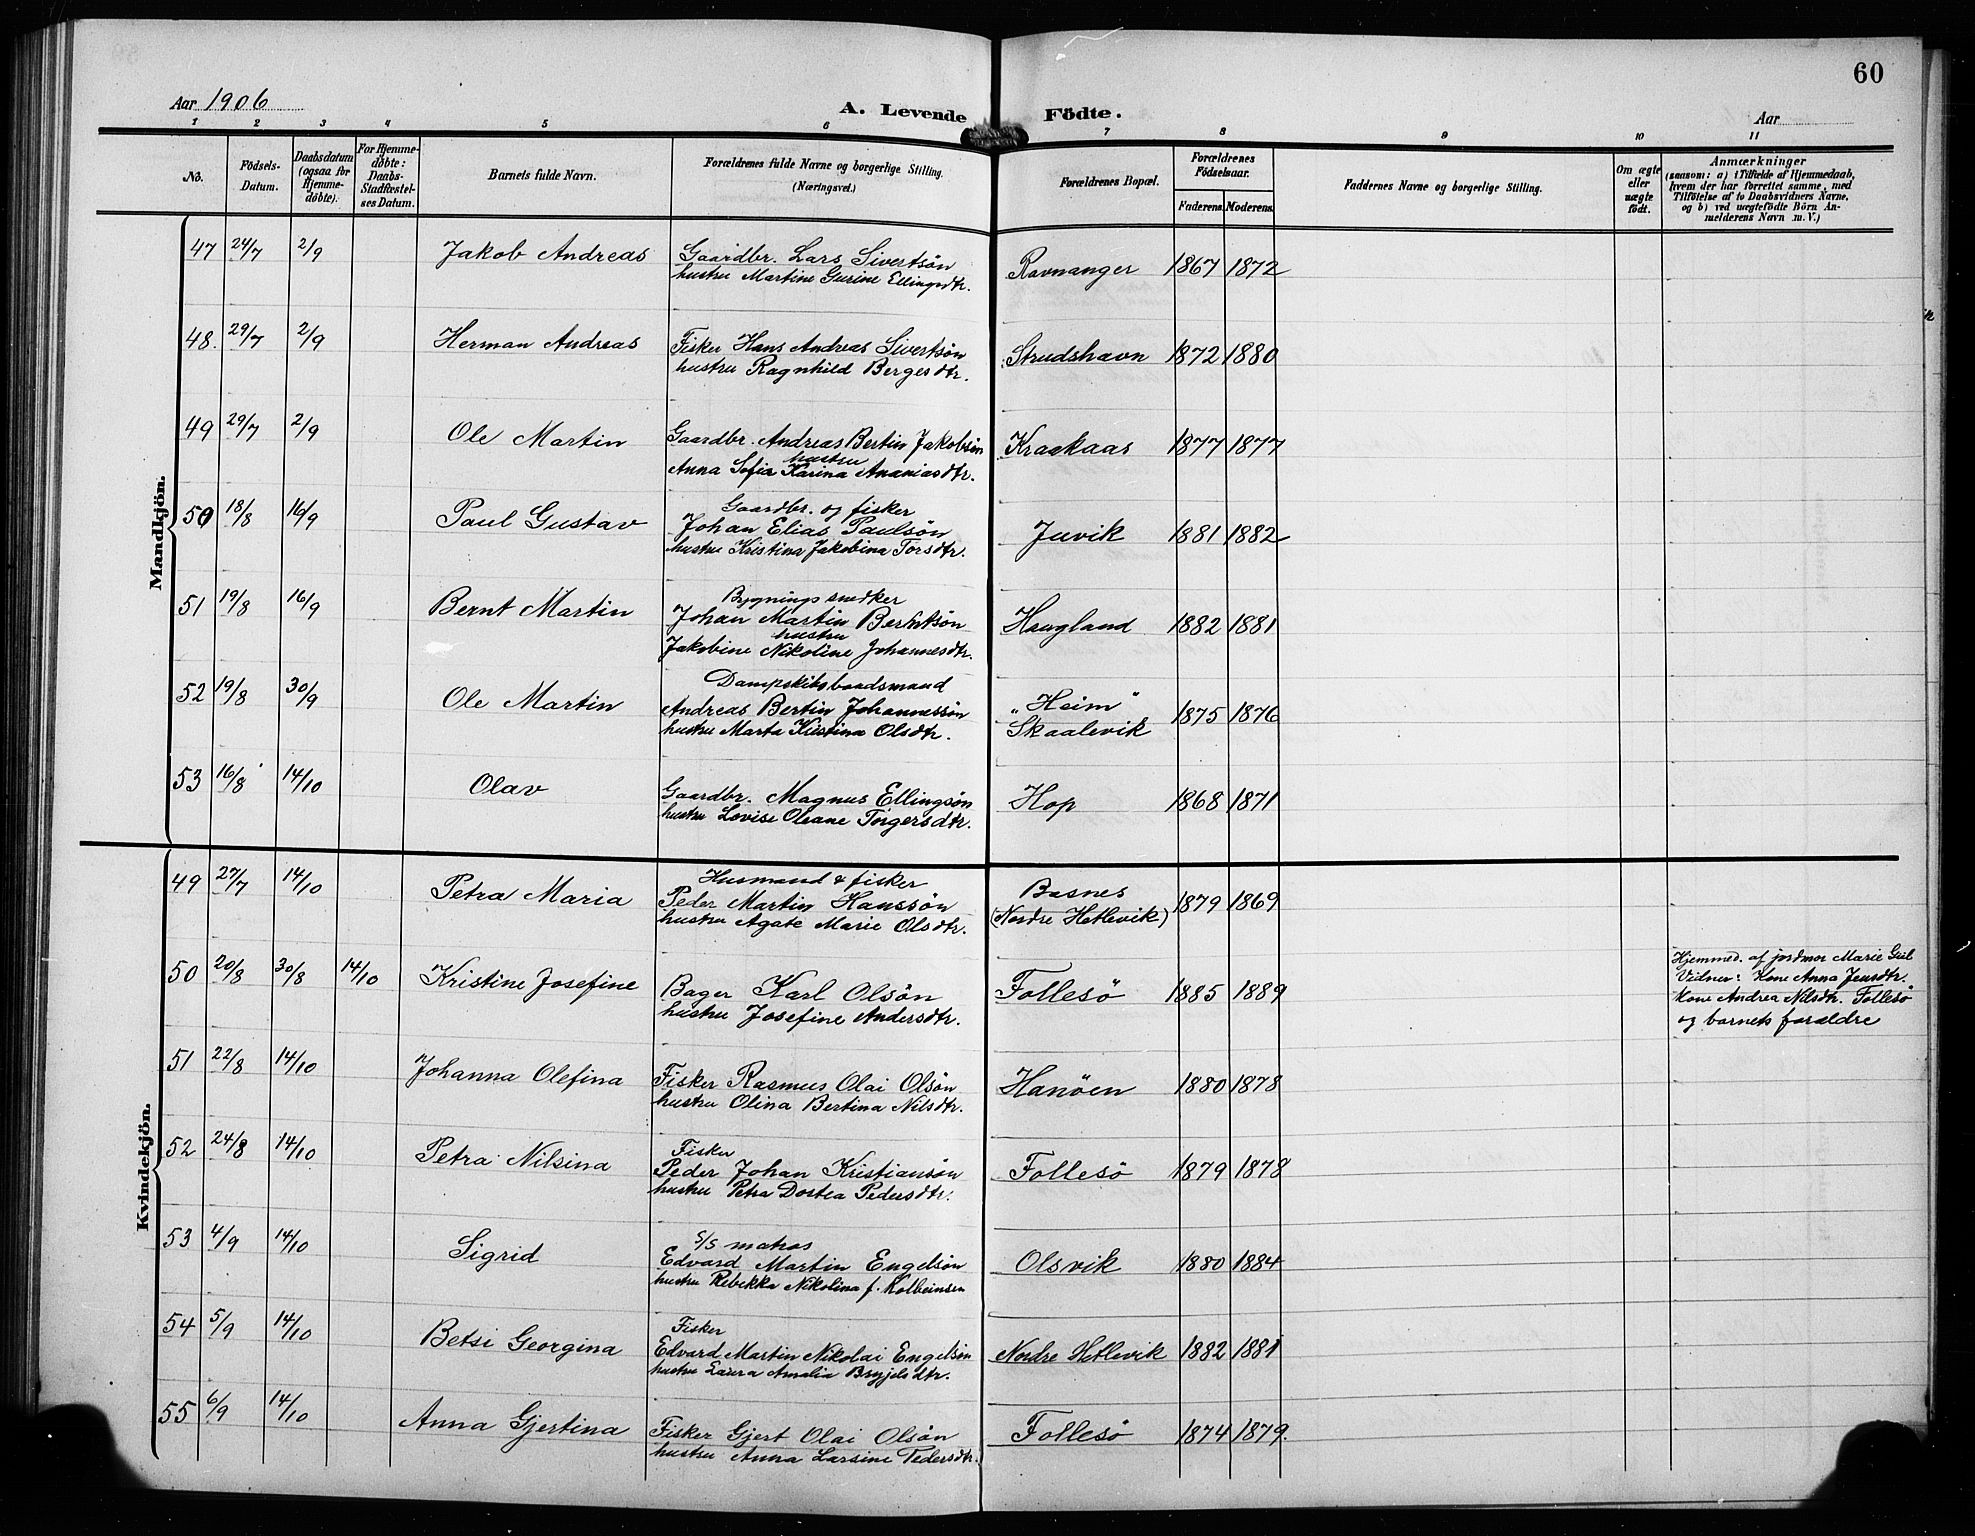 60
Aar 1906 A. Levende Födte. Aar
1 2 3 4 5 6 7 8 9 10 11
No. Födsels-Datum. Daabsdatum (ogsaa for Hjemmedøbte). For Hjemmedøbte: Daabs-Stadfæstelses Datum. Barnets fulde Navn. Forældrenes fulde Navne og borgerlige Stilling. (Næringsvei.) Forældrenes Bopæl. Forældrenes Födselsaar. Faderens. Moderens. Faddernes Navne og borgerlige Stilling. Om ægte eller uægte født. Anmærkninger (saasom: a) i Tilfælde af Hjemmedaab, hvem der har forrettet samme, med Tilföielse af to Daabsvidners Navne, og b) ved uægtefödte Börn Anmelderens Navn m. V.)
Mandkjön.
47 24/7 2/9 Jakob Andreas Gaardbr. Lars Sivertsön
hustru Martine Gurine Ellingsdtr. Ravnanger 1867 1872
48. 29/7 2/9 Herman Andreas Fisker Hans Andreas Sivertsön
hustru Ragnhild Bergesdtr. Strudshavn 1872 1880
49 29/7 2/9 Ole Martin Gaardbr. Andreas Bertin Jakobsön
hustru
Anna Sofia Karina Ananiasdtr. Kraakaas 1877 1877
50 18/8 16/9 Paul Gustav Gaardbr. og fisker
Johan Elias Paulsön
hustru Kristina Jakobina Torsdtr. Juvik 1881 1882
51 19/8 16/9 Bernt Martin Bygningssnedker
Johan Martin Berntsön
hustru
Jakobine Nikoline Johannesdtr. Haugland 1882 1881
52 19/8 30/9 Ole Martin Dampskibsbaadsmand
Andreas Bertin Johannessön
hustru Marta Kristina Olsdtr. „Heim”
Skaalevik 1875 1876
53 16/8 14/10 Olav Gaardbr. Magnus Ellingsön
hustru Lovise Oleane Torgersdtr. Hop 1868 1871
Kvindekjön.
49 27/7 14/10 Petra Maria Husmand & fisker
Peder Martin Hanssön
hustru Agate Marie Olsdtr. Basnes
(Nordre Hetlevik) 1879 1869
50 20/8 30/8 14/10 Kristine Josefine Bager Karl Olsön
hustru Josefine Andersdtr. Follesö 1885 1889 Hjemmed. af jordmor Marie
Vidner: Kone Anna Jensdtr.
Kone Andrea Nilsdtr. Follesö
og barnets forældre
51 22/8 14/10 Johanna Olefina Fisker Rasmus Olai Olsön
hustru Olina Bertina Nilsdtr. Hanöen 1880 1878
52 24/8 14/10 Petra Nilsina Fisker
Peder Johan Kristiansön
hustru Petra Dortea Pedersdtr. Follesö 1879 1878
53 4/9 14/10 Sigrid S/S matros
Edvard Martin Engelsön
hustru Rebekka Nikolina f. Kolbeinsen Olsvik 1880 1884
54 5/9 14/10 Betsi Georgina Fisker
Edvard Martin Nikolai Engelsön
hustru Laura Amalia Brynjelsdtr. Nordre Hetlevik 1882 1881
55 6/9 14/10 Anna Gjertina Fisker Gjert Olai Olsön
hustru Anna Larsine Pedersdtr. Follesö 1874 1879.